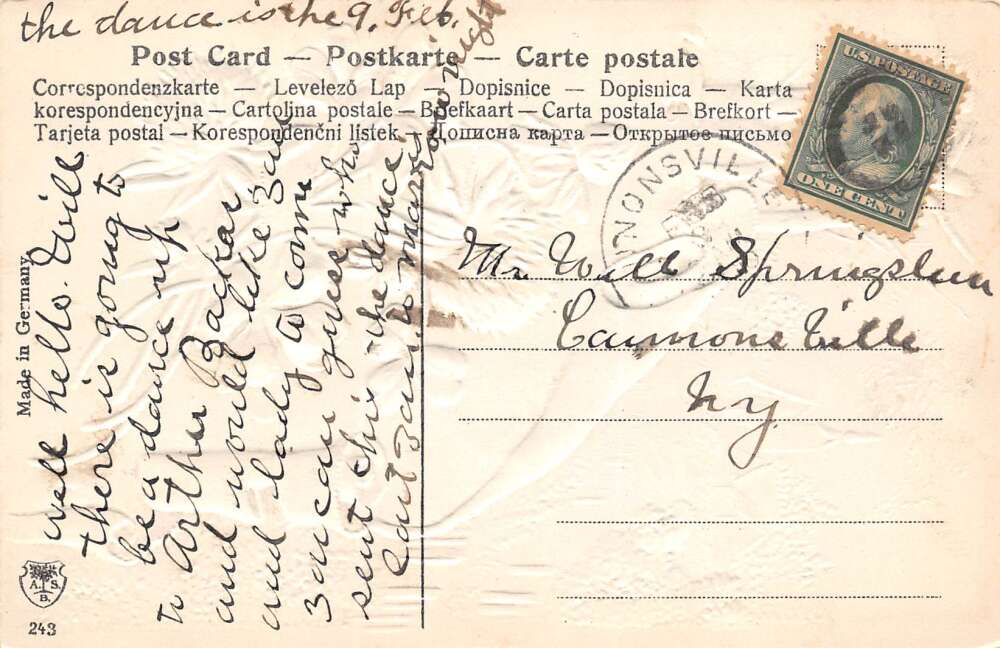 the dance is the 9. Feb.
Post Card — Postkarte — Carte postale
Correspondenzkarte — Levelező Lap — Dopisnice — Dopisnica — Karta
korespondencyjna — Cartolina postale — Briefkaart — Carta postala — Brefkort —
Tarjeta postal — Korespondenční listek — Дописна карта — Открытое письмо
U.S. POSTAGE
ONE CENT
NONSVILLE
Mr Will Springsteen
Cannonsville
Ny
well hello. Will
there is goning to
be a dance up
to Arthur Backar
and would like 3au
and lady to come
3au can guess who
sent this the dance
night
Made in Germany
A. S.
B.
243